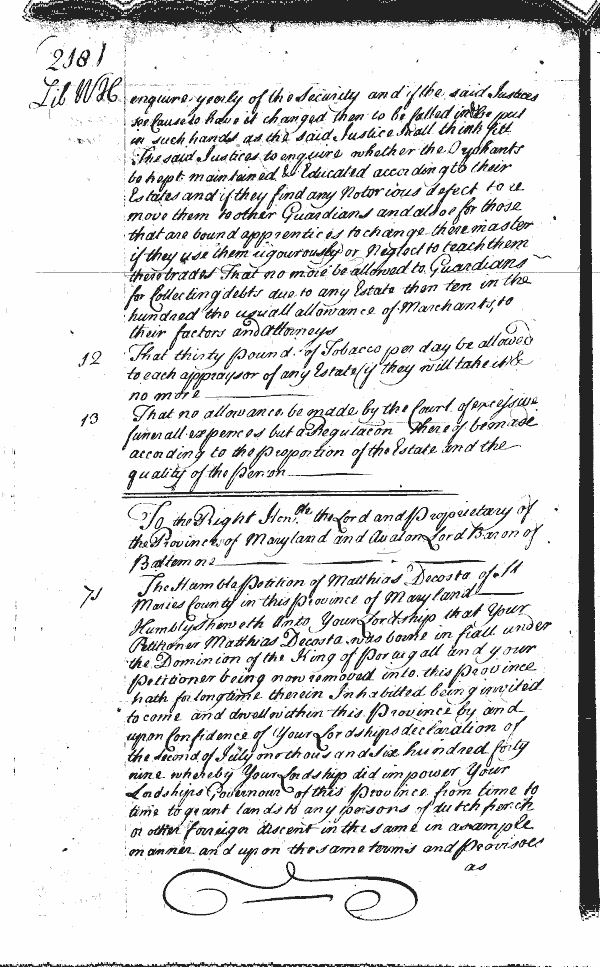 2181
Lib WH
enquire yearly of the Security and if the said Justices
see Cause to have it changed then to be called in & be put
in such hands as the said Justice shall think fitt
The said Justices to enquire whether the Orphants
be kept maintained & Educated according to their
Estates and if they find any Notorious defect to re
move them to other Guardians and alsoe for those
that are bound apprentices to change there master
if they use them rigourously or Neglect to teach them
there trades That no more be allowed to Guardians
for Collecting debts due to any Estate then ten in the
hundred the usuall allowance of Marchants, to
their factors and Attorneys
12 That thirty pound of Tobacco per day be allowed
to each appraysor of any Estate if they will take it &
no more
13 That no allowance be made by the Court of excessive
funerall expences but a Regulacon thereof be made
according to the proportion of the Estate and the
quality of the Person
To the Right Honble the Lord and Proprietary of
the Province of Maryland and Avalon Lord Baron of
Baltemore
The Humble Petition of Matthias Decosta of St
71 Maries County in this Province of Maryland
Humbly Sheweth Unto Your Lordship that Your
Petitioner Matthias Decosta was borne in fiall under
the Dominion of the King of Portugall and your
petitioner being now removed into this Province
hath for longtime therein Inhabitted being invited
to come and dwell within this Province by and
upon Confidence of Your Lordships declaration of
the second of July one thousand six hundred forty
nine whereby Your Lordship did impower Your
Lordships Governour of this Province from time to
time to grant lands to any persons of dutch french
or other foreign discent in the same in as ample
manner and upon the same terms and Provisoes
as